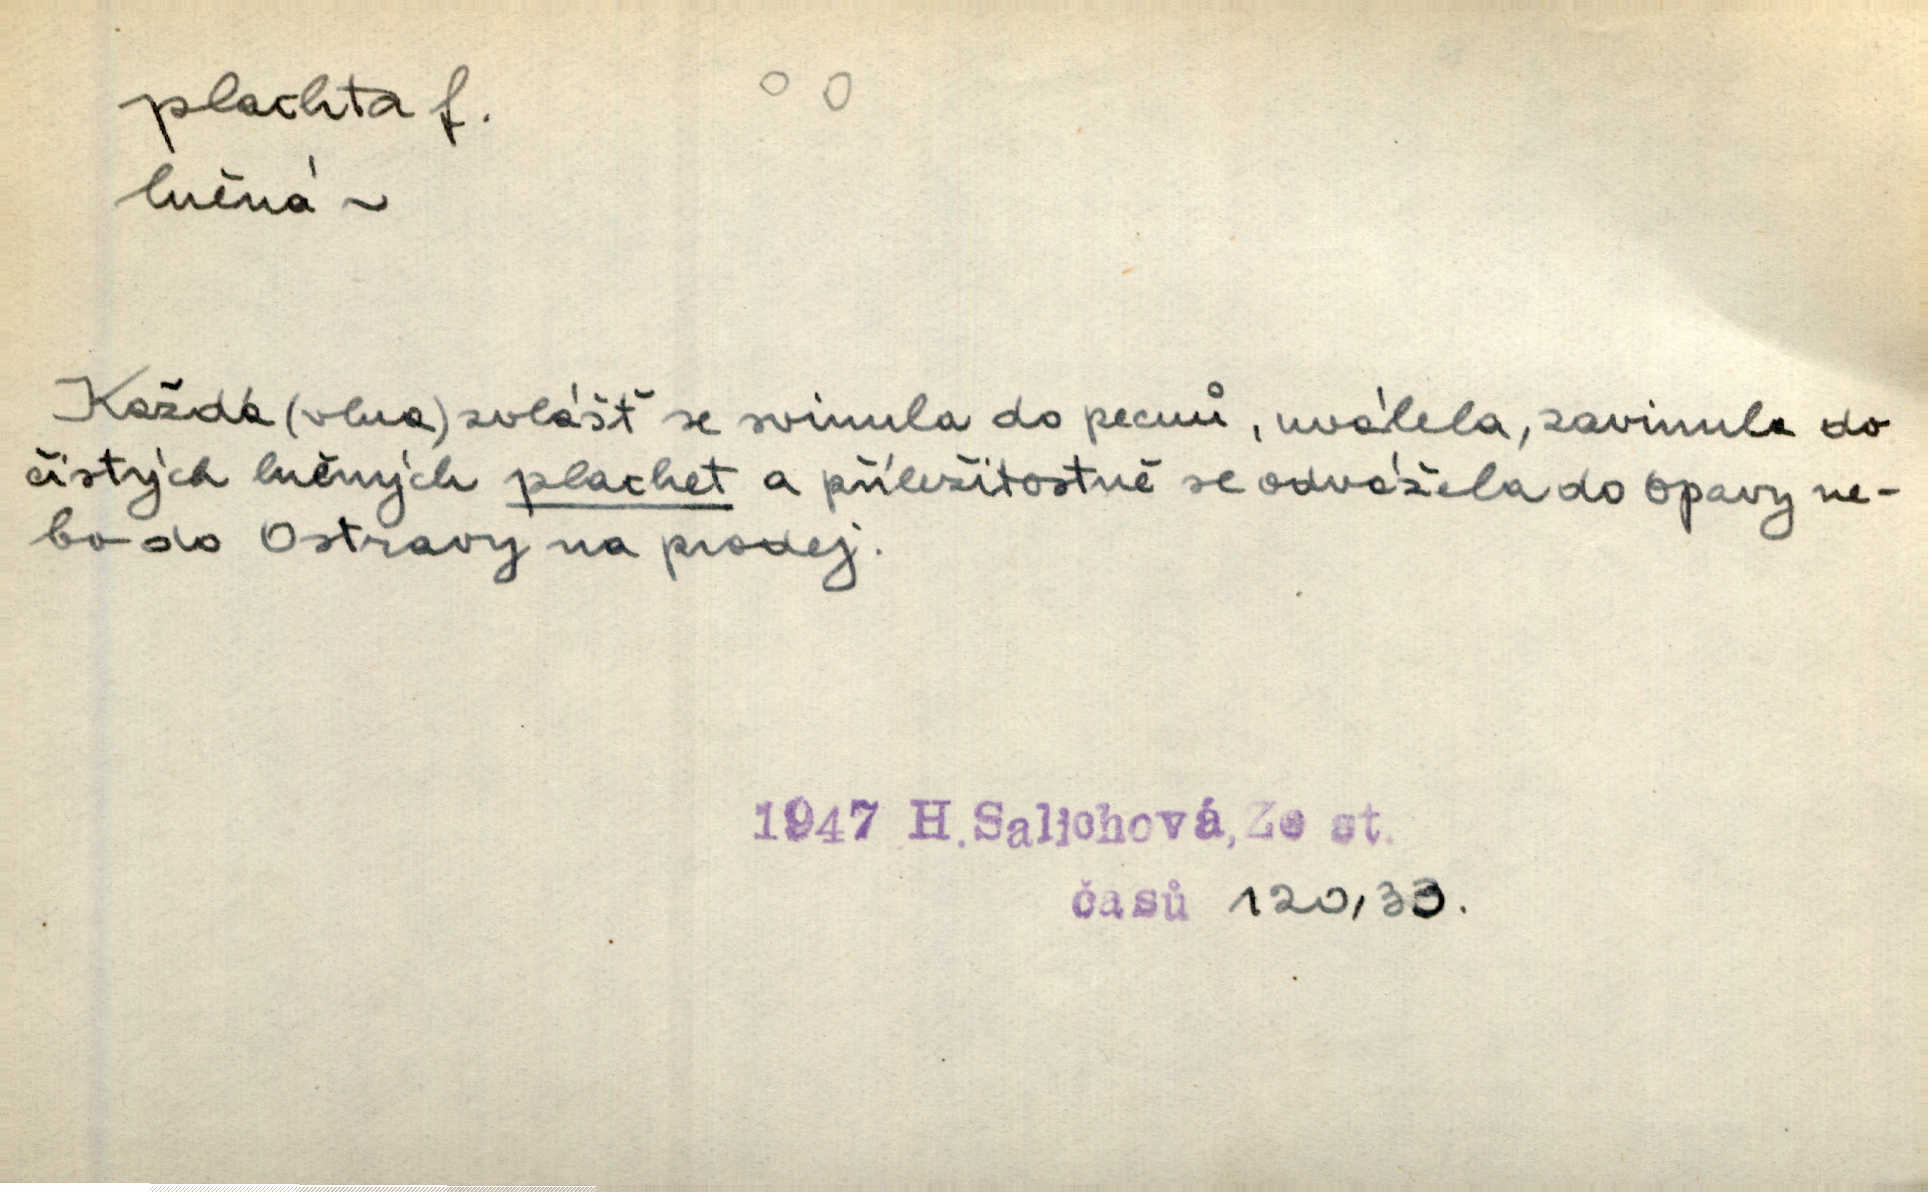 plachta f.
lněná ~
Každá (vlna) zvlášť se svinula do pecnů, uválela, zavinula do
čistých lněných plachet a příležitostně se odvážela do Opavy ne-
bo do Ostravy na prodej.
1947 H.Salichová, Ze st.
časů 120,33.